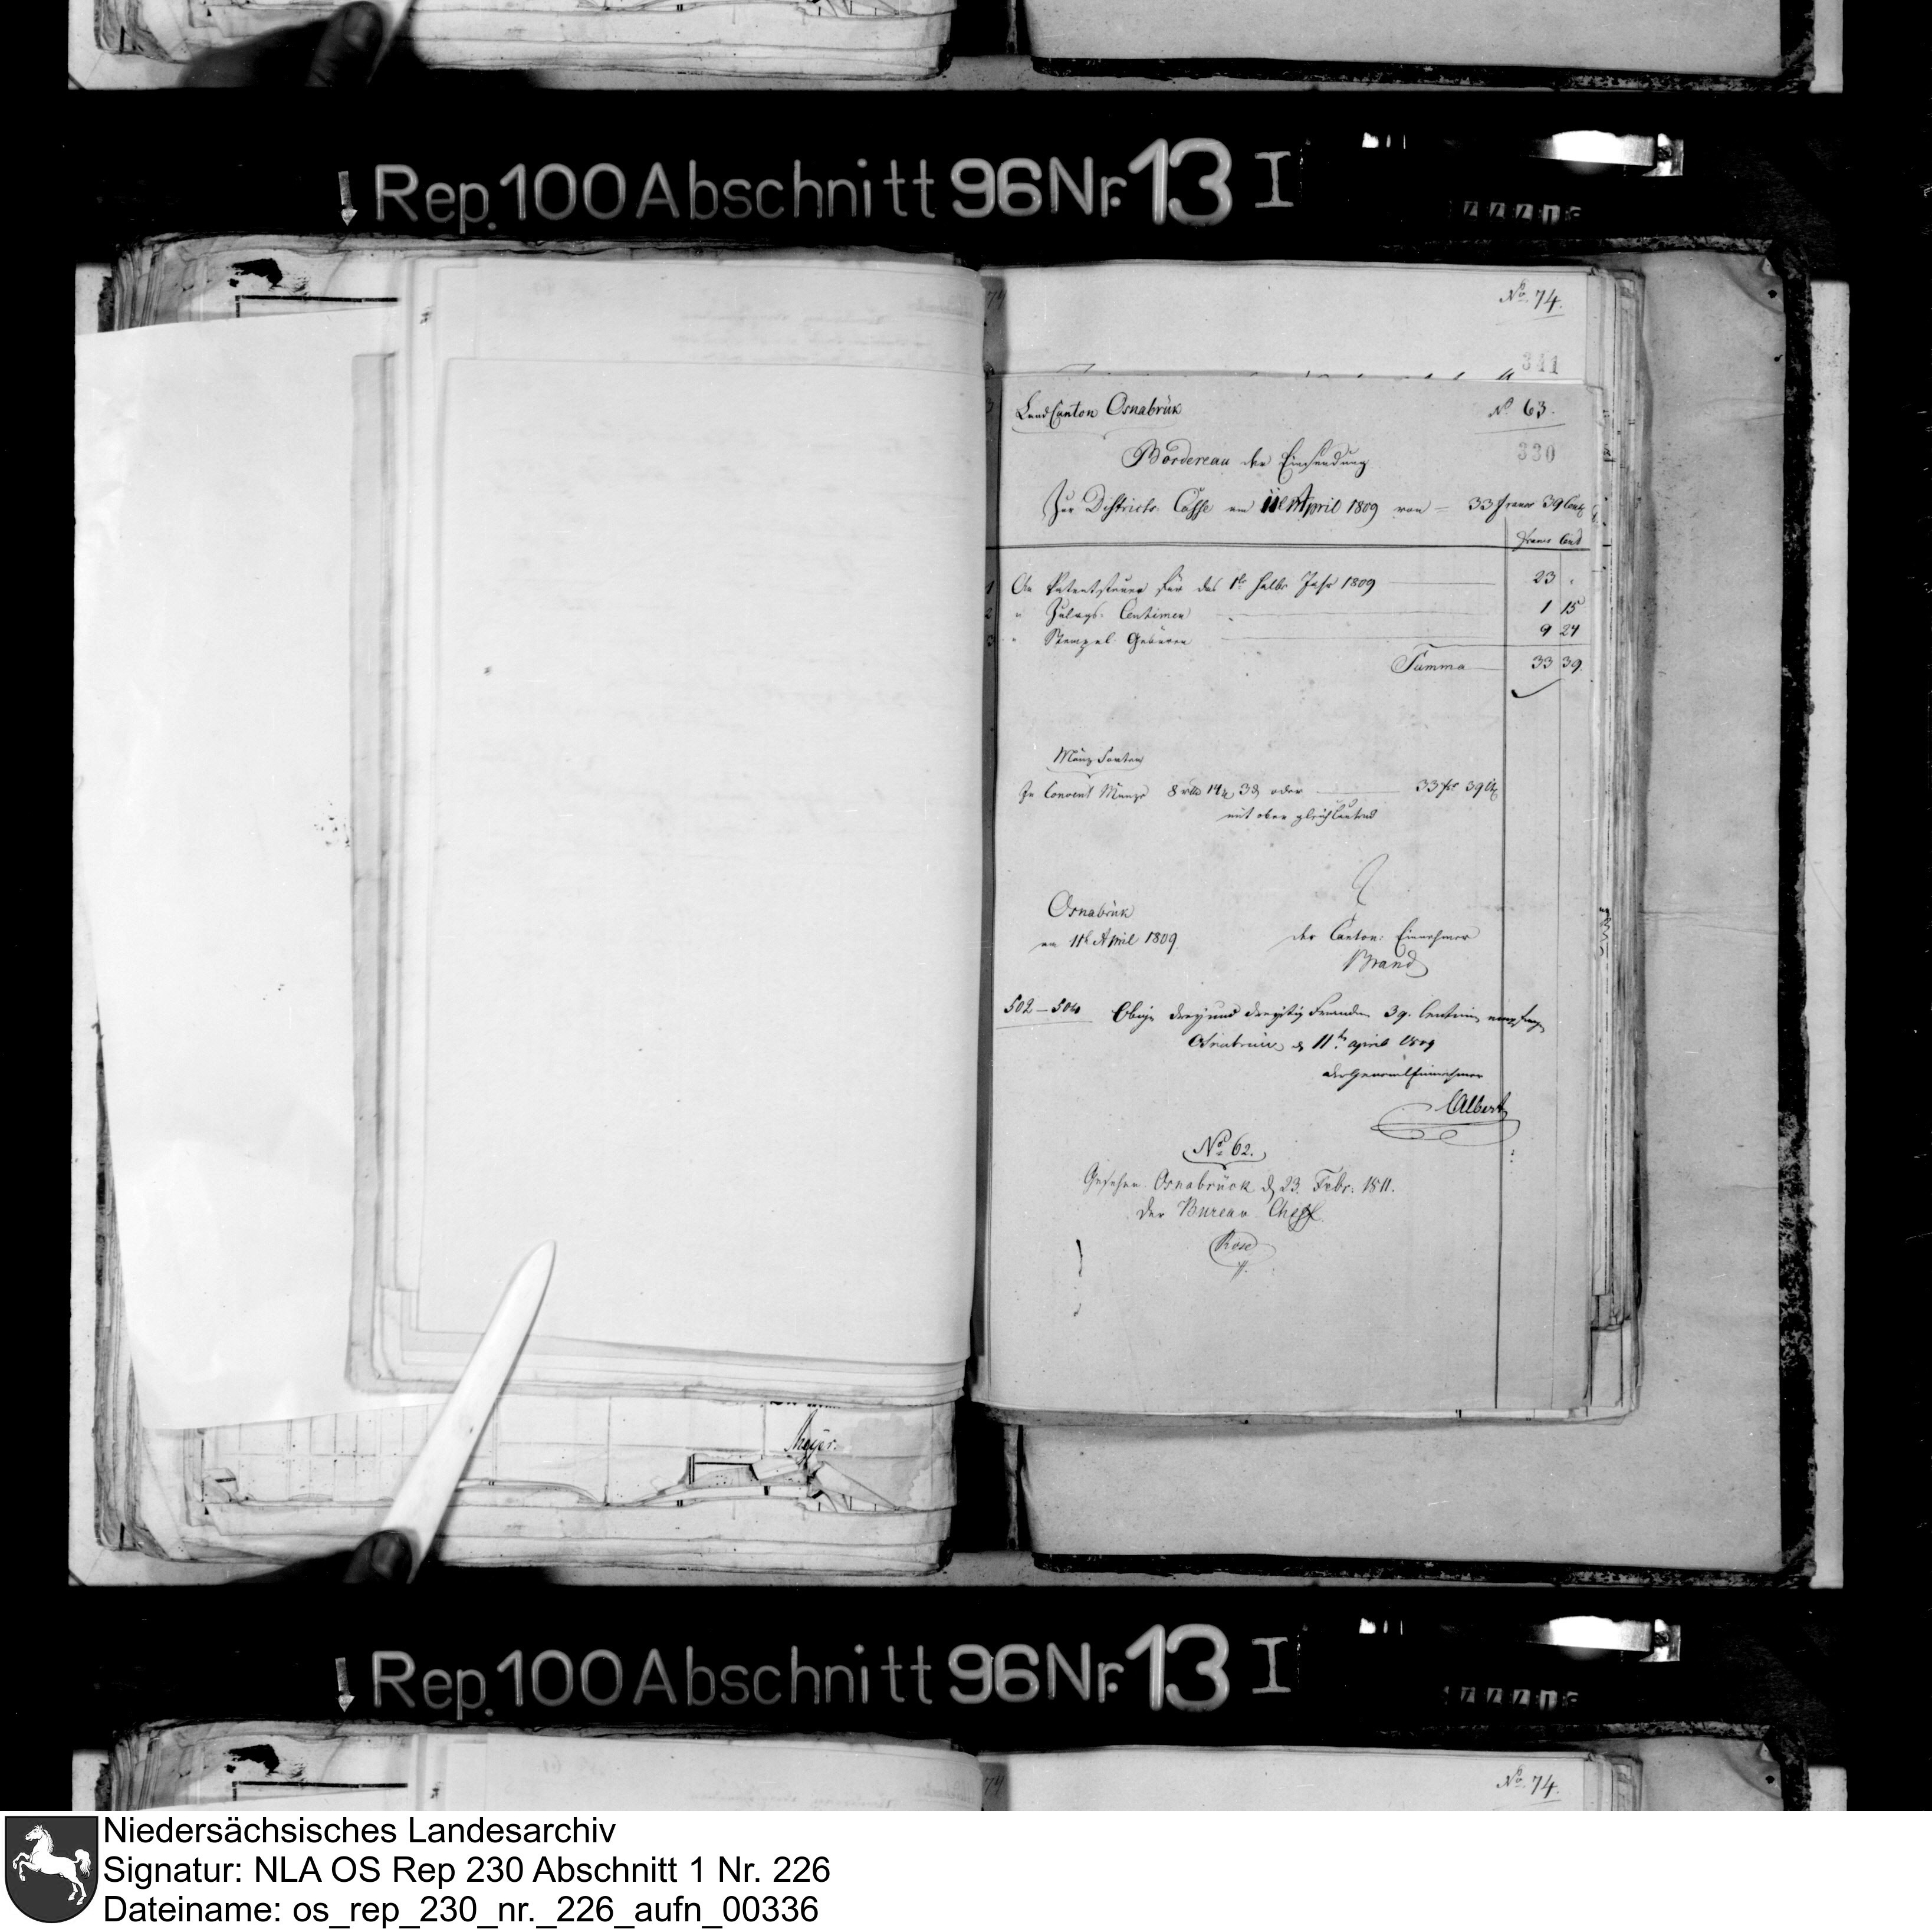 Rep. 100 Abschnitt 96 Nr. 13 I
No. 74.
341
Land Canton Osnabrük
No 63.
330
Bordereau der Einsendung
Zur Districts Casse am 11ten April 1809 von = 33 Francs 39 Cent
Francs Cent
1 An Patentsteuer für das 1te halbe Jahr 1809 23 .
2 " Zulags- Centimen 1 15
3 " Stempel- Gebüren 9 24
Summa 33 39
Münz Sorten
In Convent Münze 8 14 3 oder 33 fr 39
Osnabrük
am 11t April 1809.
der Canton: Einnehmer
Brand
502-504 Obige drey und dreyßig Franken 39. Centim empfangen
Osnabrück d 11ten April 1809
der General Einnehmer
CAlbert
No 62.
Gesehen Osnabrück d 23. Febr: 1811.
Der Bureau Cheff
Rose
Meyer.
Rep. 100 Abschnitt 96 Nr. 13 I
No. 74.
Niedersächsisches Landesarchiv
Signatur: NLA OS Rep 230 Abschnitt 1 Nr. 226
Dateiname: os_rep_230_nr._226_aufn_00336